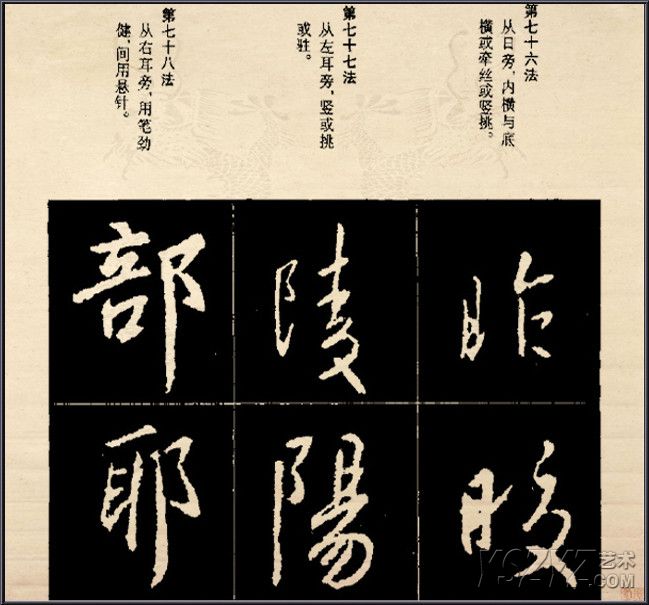 第七十六法
从日旁，内横与底
横或牵丝或竖挑。
第七十七法
从左耳旁，竖或挑
或驻。
第七十八法
从右耳旁，用笔劲
健，间用悬针。
昨
陵
部
陽
耶
YSZYZ艺术
.COM